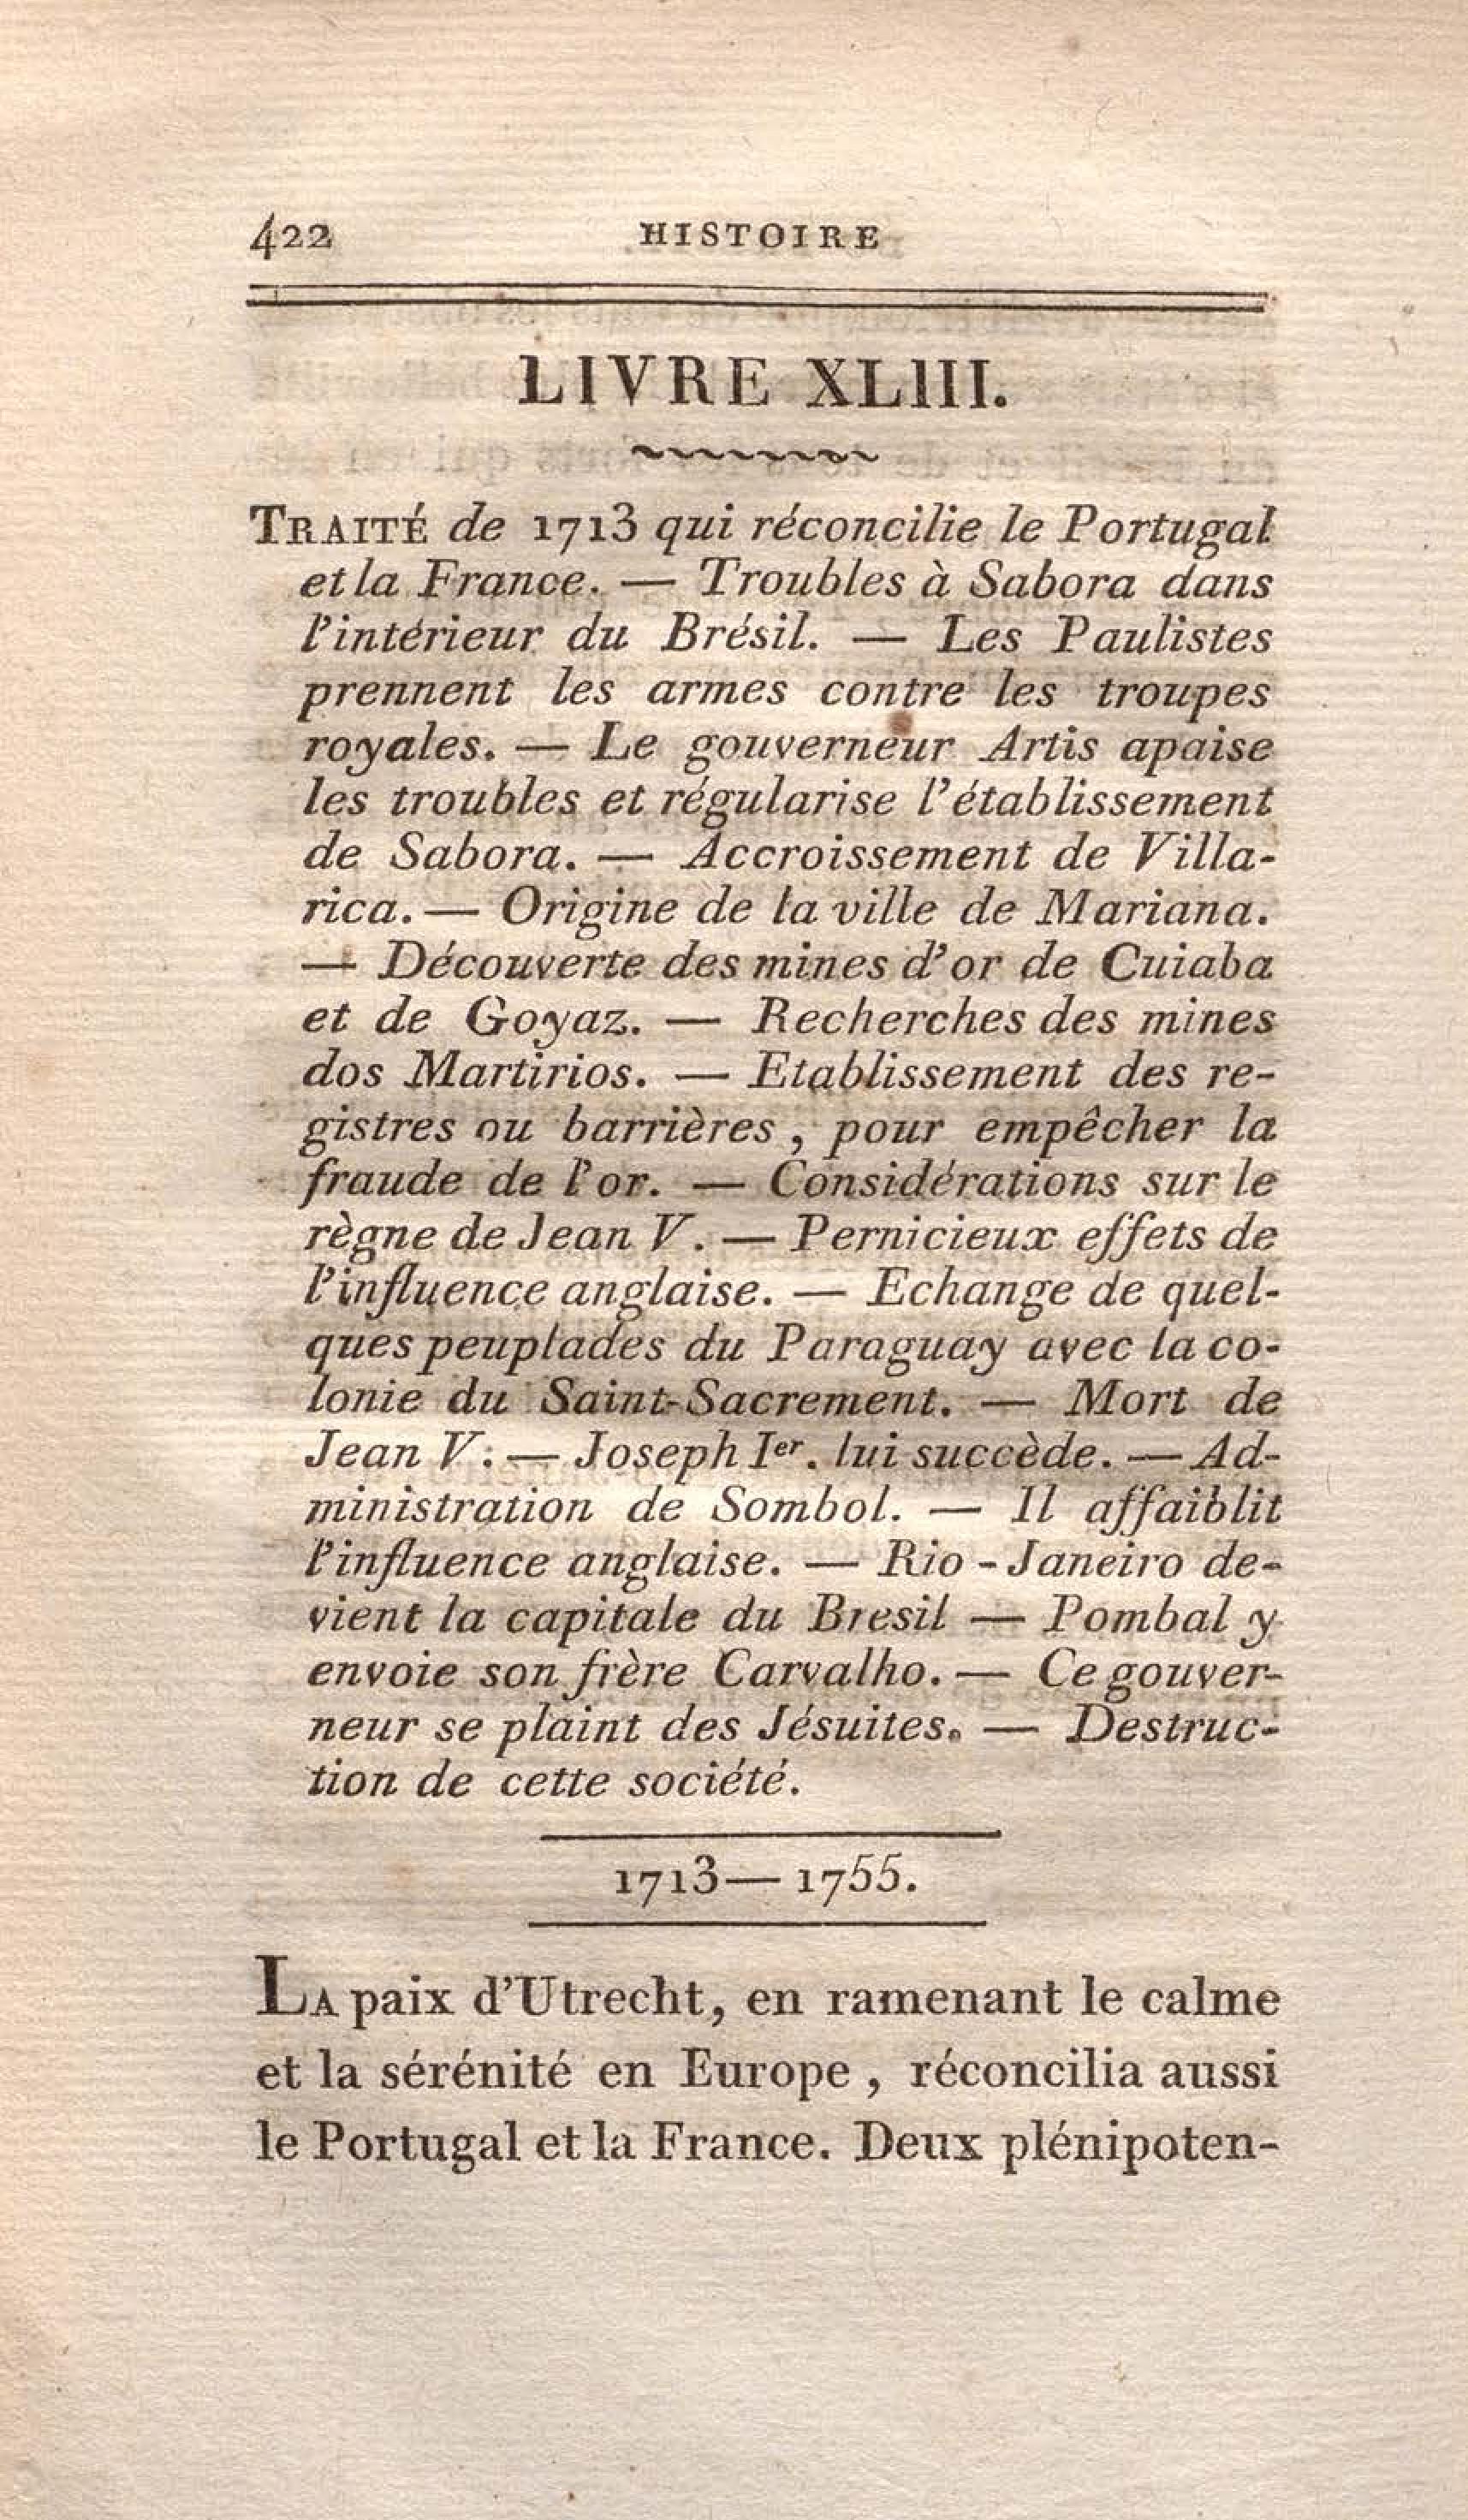 422 HISTOIRE
LIVRE XLIII.
TRAITÉ de 1713 qui réconcilie le Portugal
et la France. — Troubles à Sabora dans
l'intérieur du Brésil. — Les Paulistes
prennent les armes contre les troupes
royales. — Le gouverneur Artis apaise
les troubles et régularise l'établissement
de Sabora. — Accroissement de Villa-
rica. — Origine de la ville de Mariana.
— Découverte des mines d'or de Cuiaba
et de Goyaz. — Recherches des mines
dos Martirios. — Etablissement des re-
gistres ou barrières, pour empêcher la
fraude de l'or. — Considérations sur le
règne de Jean V. — Pernicieux effets de
l'influence anglaise. — Echange de quel-
ques peuplades du Paraguay avec la co-
lonie du Saint-Sacrement. — Mort de
Jean V. — Joseph Ier. lui succède. — Ad-
ministration de Sombol. — Il affaiblit
l'influence anglaise. — Rio-Janeiro de-
vient la capitale du Bresil — Pombal y
envoie son frère Carvalho. — Ce gouver-
neur se plaint des Jésuites. — Destruc-
tion de cette société.
1713 — 1755.
LA paix d'Utrecht, en ramenant le calme
et la sérénité en Europe, réconcilia aussi
le Portugal et la France. Deux plénipoten-